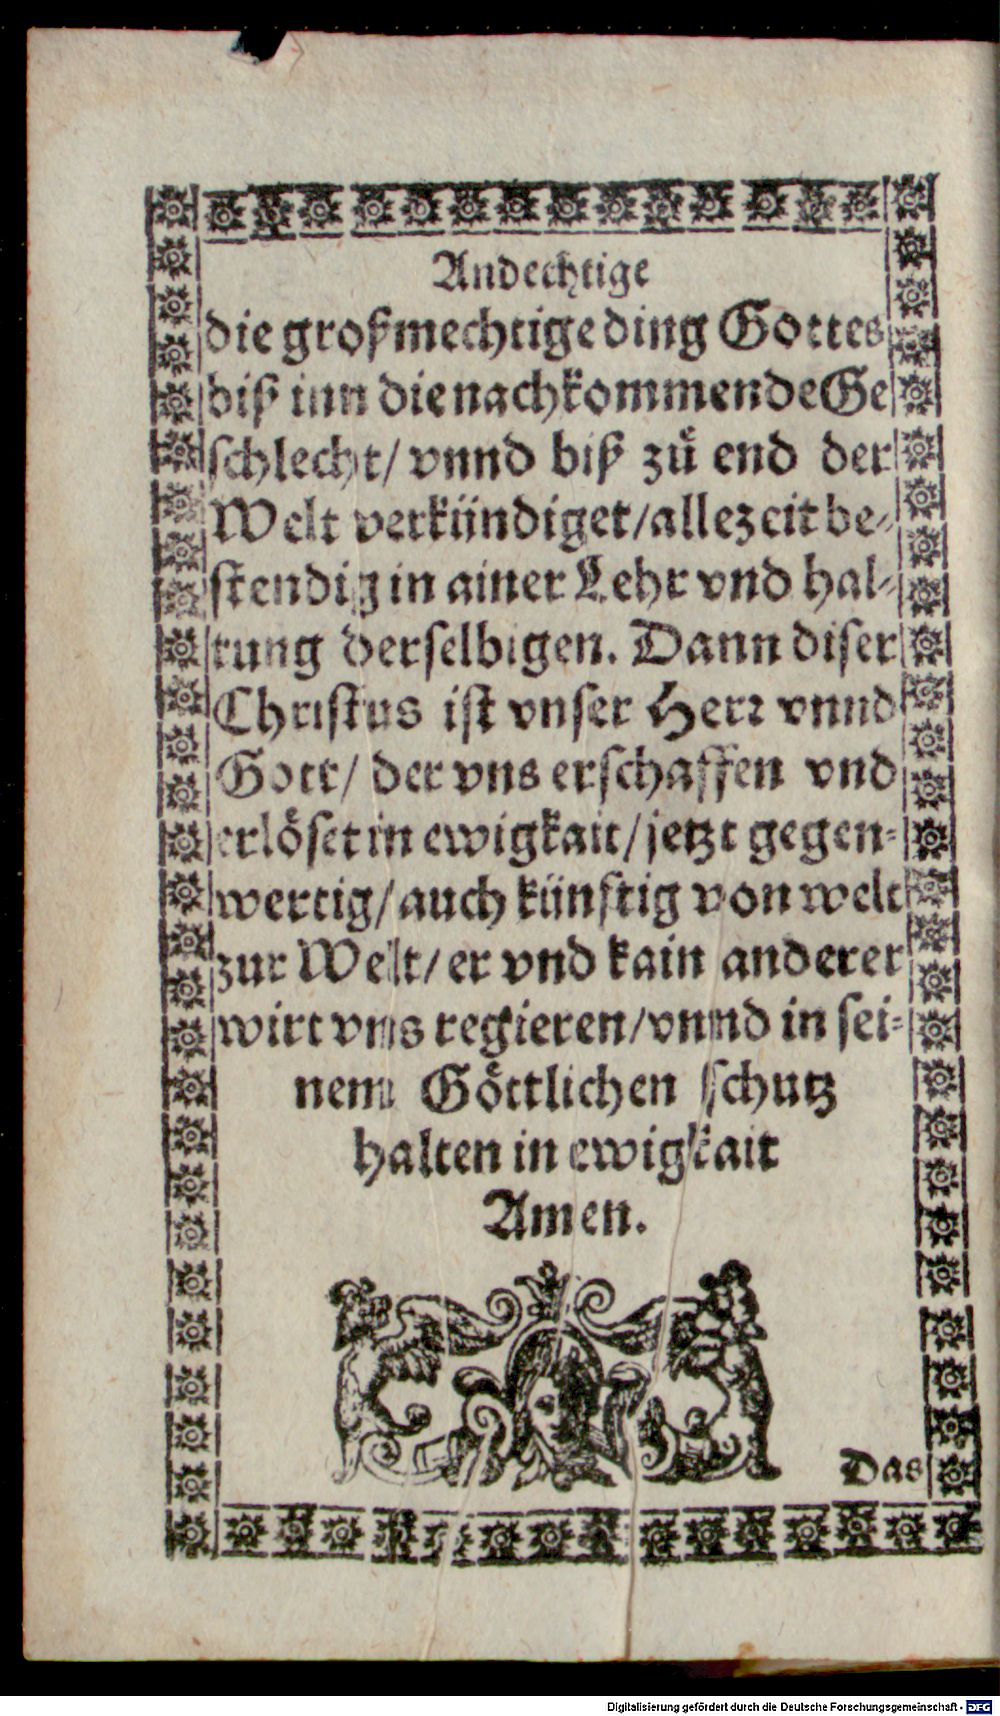 Andechtige
die großmechtige ding Gottes
biß inn die nachkommende Ge
schlecht/ vnnd biß zuͤ end der
Welt verkündiget/ allezeit be-
stendig in ainer Lehr vnd hal-
tung derselbigen. Dann diser
Christus ist vnser Herr vnnd
Gott/ der vns erschaffen vnd
erlöset in ewigkait/ jetzt gegen-
wertig/ auch künftig von welt
zur Welt/ er vnd kain anderer
wirt vns regieren/ vnnd in sei-
nem Göttlichen schutz
halten in ewigkait
Amen.
Das
Digitalisierung gefördert durch die Deutsche Forschungsgemeinschaft - DFG